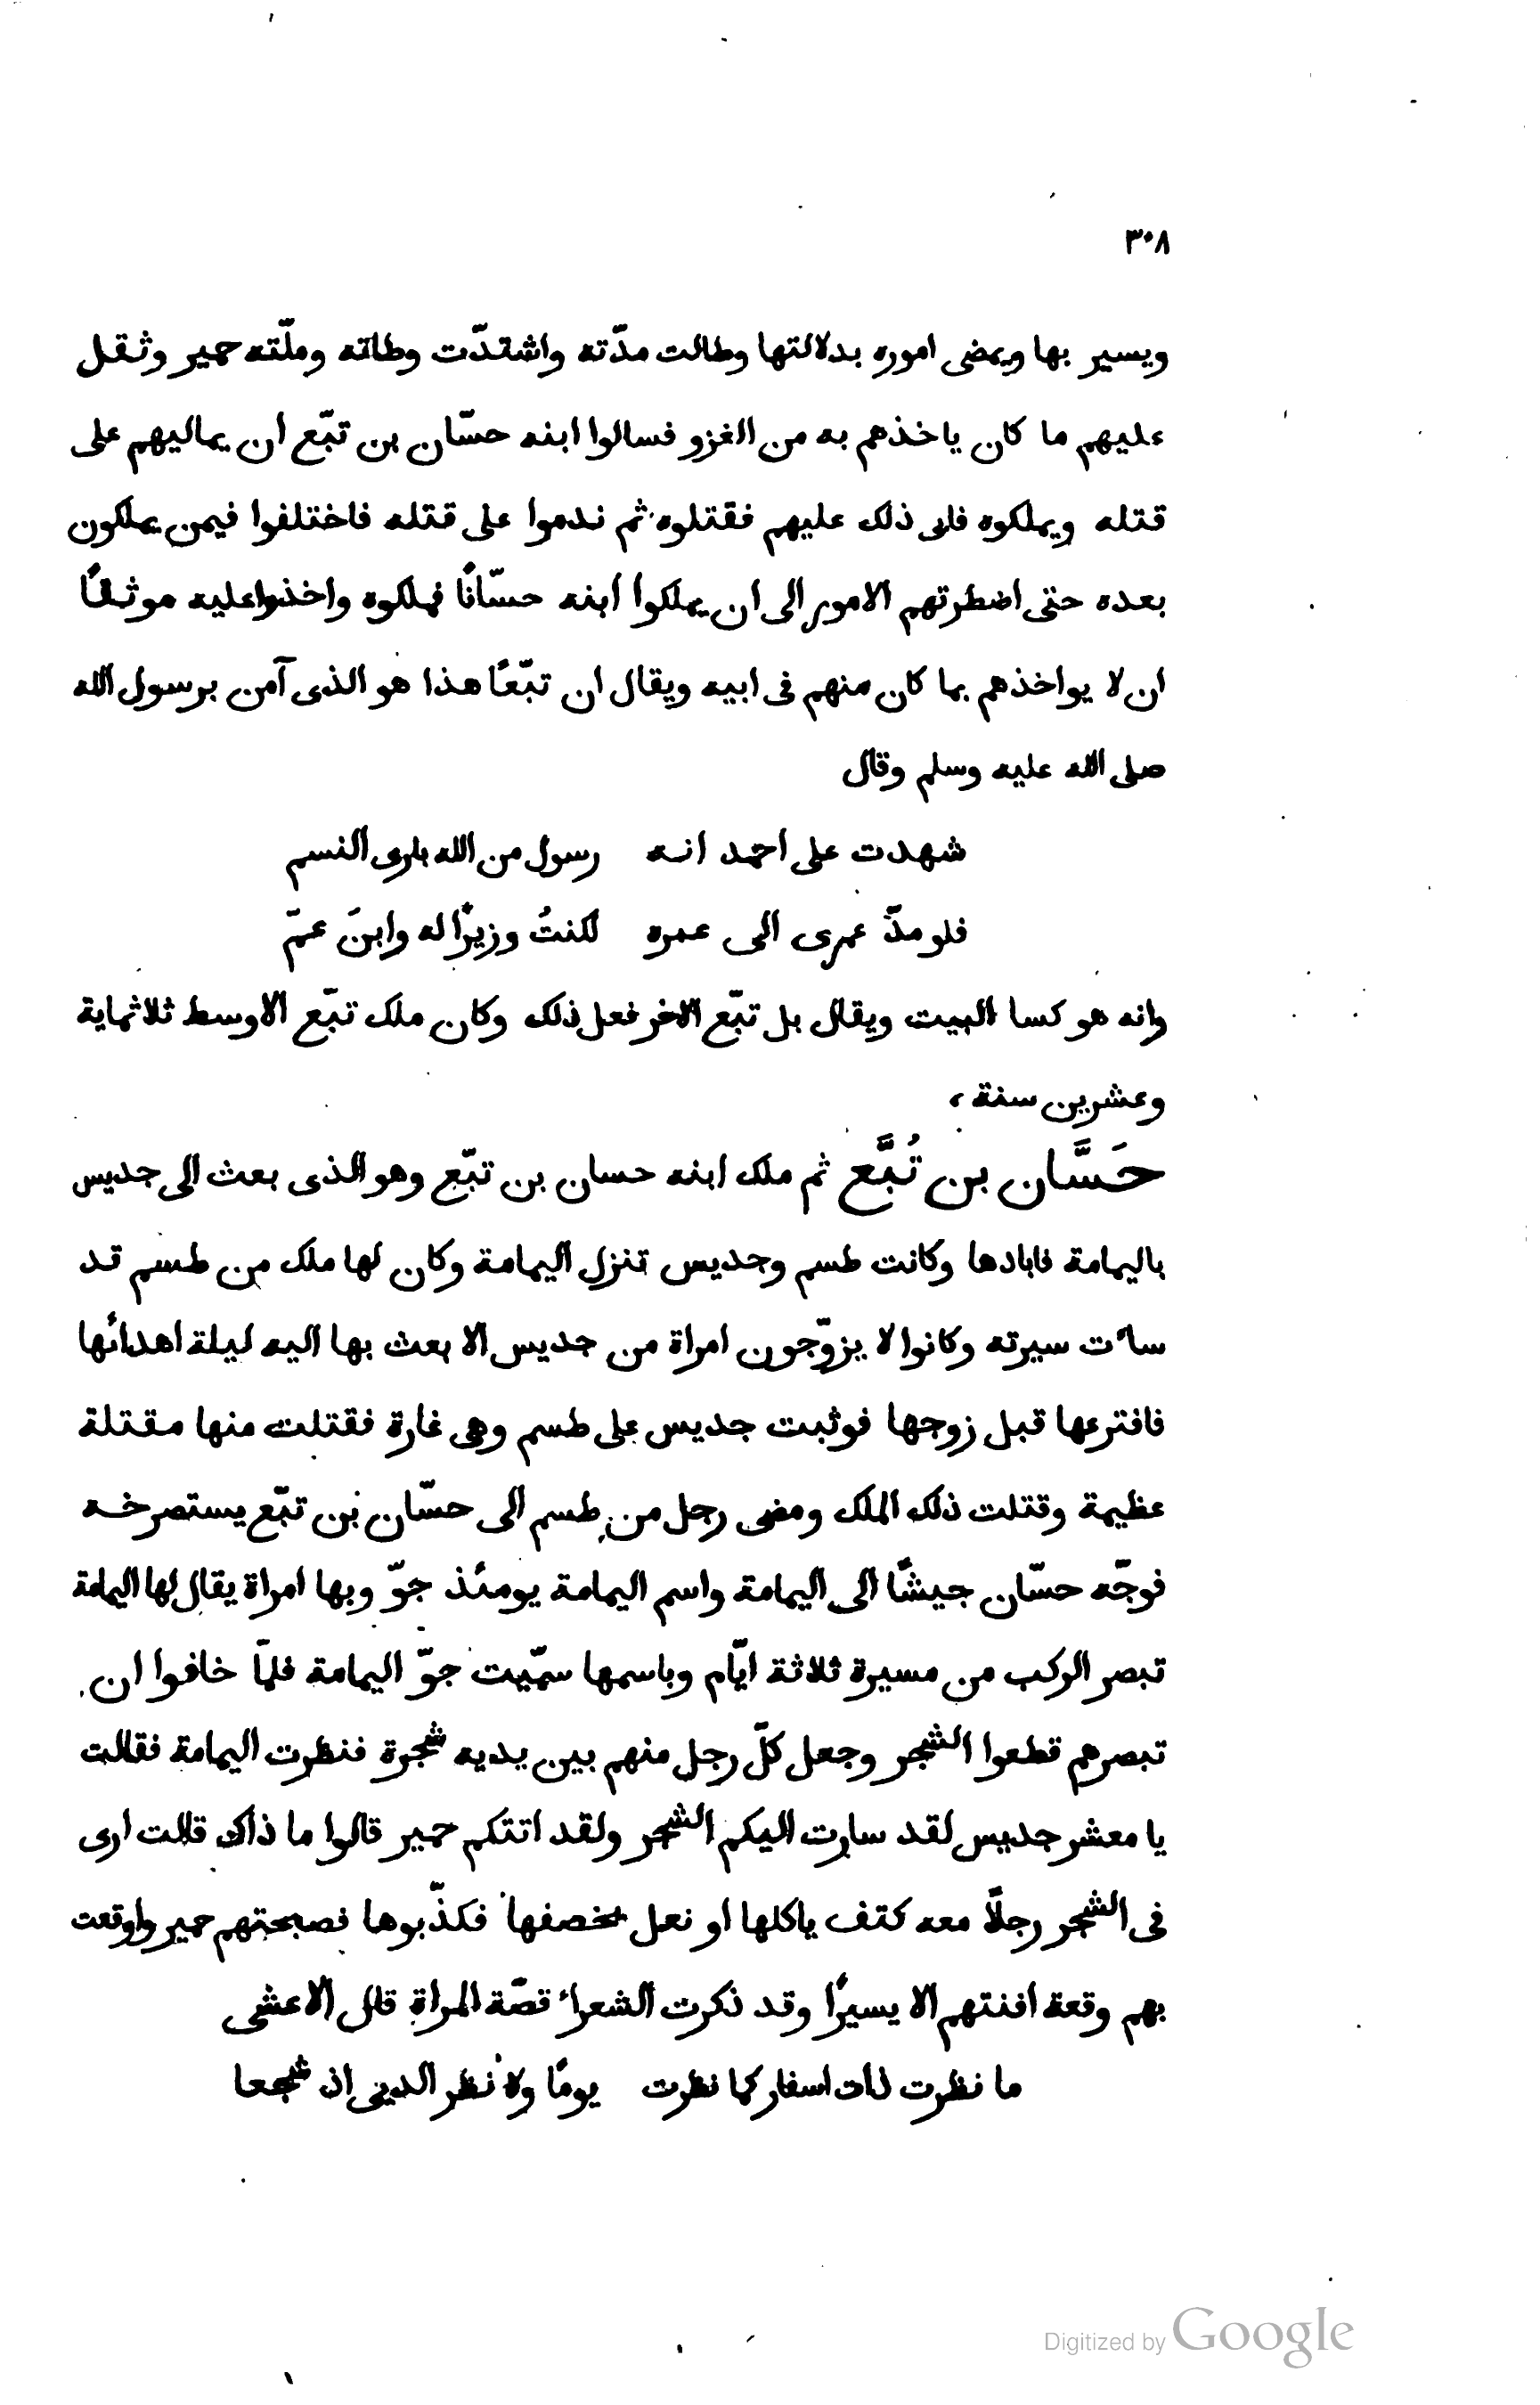 ٣٠٨
ويسير بها ويمضى اموره بدلالتها وطالت مدّته واشتدّت وطاته وملّته حمير وثقل
عليهم ما كان ياخذهم به من الغزو فسالوا ابنه حسّان بن تبّع ان يماليهم على
قتله ويملكوه فابى ذلك عليهم فقتلوه ثم ندموا على قتله فاختلفوا فيمن يملكون
بعده حتى اضطرتهم الامور الى ان يملكوا ابنه حسّانًا فملكوه واخذوا عليه موثقًا
ان لا يواخذهم بما كان منهم فى ابيه ويقال ان تبّعًا هذا هو الذى آمن برسول الله
صلى الله عليه وسلم وقال
شهدت على احمد انه رسول من الله بارى النسم
فلو مدّ عمرى الى عمره لكنتُ وزيرًا له وابنَ عمّ
وانه هو كسا البيت ويقال بل تبّع الاخر فعل ذلك وكان ملك تبّع الاوسط ثلاثماية
وعشرين سنة،
حَسَّان بن تُبَّع ثم ملك ابنه حسان بن تبّع وهو الذى بعث الى جديس
باليمامة فابادها وكانت طسم وجديس تنزل اليمامة وكان لها ملك من طسم قد
ساءت سيرته وكانوا لا يزوّجون امراة من جديس الا بعث بها اليه ليلة اهدائها
فافترعها قبل زوجها فوثبت جديس على طسم وهى غارة فقتلت منها مقتلة
عظيمة وقتلت ذلك الملك ومضى رجل من طسم الى حسّان بن تبّع يستصرخه
فوجّه حسّان جيشًا الى اليمامة واسم اليمامة يومئذ جوّ وبها امراة يقال لها اليمامة
تبصر الركب من مسيرة ثلاثة ايّام وباسمها سمّيت جوّ اليمامة فلمّا خافوا ان
تبصرهم قطعوا الشجر وجعل كلّ رجل منهم بين يديه شجرة فنظرت اليمامة فقالت
يا معشر جديس لقد سارت اليكم الشجر ولقد اتتكم حمير قالوا ما ذاك قالت ارى
فى الشجر رجلًا معه كتف ياكلها او نعل يخصفها فكذّبوها فصبحتهم حمير واوقعت
بهم وقعة افنتهم الا يسيرًا وقد ذكرت الشعراء قصّة المراة قال الاعشى
ما نظرت ذات اسفار كما نظرت يومًا ولا نظر الديبى اذ شجعا
Digitized by Google